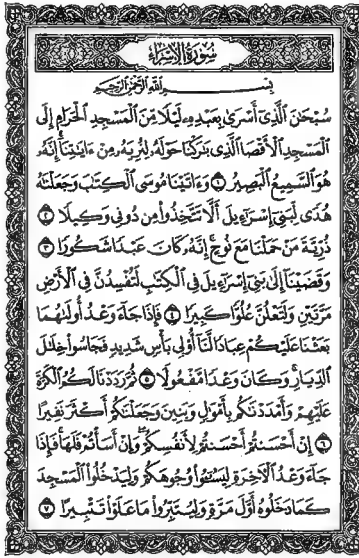 سُورَةُ الإِسْرَاءِ
بِسْمِ اللَّهِ الرَّحْمَٰنِ الرَّحِيمِ
سُبْحَٰنَ الَّذِىٓ أَسْرَىٰ بِعَبْدِهِۦ لَيْلًا مِّنَ الْمَسْجِدِ الْحَرَامِ إِلَى
الْمَسْجِدِ الْأَقْصَا الَّذِى بَٰرَكْنَا حَوْلَهُۥ لِنُرِيَهُۥ مِنْ ءَايَٰتِنَآ إِنَّهُۥ
هُوَ السَّمِيعُ الْبَصِيرُ ۝١ وَءَاتَيْنَا مُوسَى الْكِتَٰبَ وَجَعَلْنَٰهُ
هُدًى لِّبَنِىٓ إِسْرَٰٓءِيلَ أَلَّا تَتَّخِذُوا۟ مِن دُونِى وَكِيلًا ۝٢
ذُرِّيَّةَ مَنْ حَمَلْنَا مَعَ نُوحٍ إِنَّهُۥ كَانَ عَبْدًا شَكُورًا ۝٣
وَقَضَيْنَآ إِلَىٰ بَنِىٓ إِسْرَٰٓءِيلَ فِى الْكِتَٰبِ لَتُفْسِدُنَّ فِى الْأَرْضِ
مَرَّتَيْنِ وَلَتَعْلُنَّ عُلُوًّا كَبِيرًا ۝٤ فَإِذَا جَآءَ وَعْدُ أُولَىٰهُمَا
بَعَثْنَا عَلَيْكُمْ عِبَادًا لَّنَآ أُو۟لِى بَأْسٍ شَدِيدٍ فَجَاسُوا۟ خِلَٰلَ
الدِّيَارِ وَكَانَ وَعْدًا مَّفْعُولًا ۝٥ ثُمَّ رَدَدْنَا لَكُمُ الْكَرَّةَ
عَلَيْهِمْ وَأَمْدَدْنَٰكُم بِأَمْوَٰلٍ وَبَنِينَ وَجَعَلْنَٰكُمْ أَكْثَرَ نَفِيرًا
۝٦ إِنْ أَحْسَنتُمْ أَحْسَنتُمْ لِأَنفُسِكُمْ وَإِنْ أَسَأْتُمْ فَلَهَا فَإِذَا
جَآءَ وَعْدُ الْءَاخِرَةِ لِيَسُۥٓـُٔوا۟ وُجُوهَكُمْ وَلِيَدْخُلُوا۟ الْمَسْجِدَ
كَمَا دَخَلُوهُ أَوَّلَ مَرَّةٍ وَلِيُتَبِّرُوا۟ مَا عَلَوْا۟ تَتْبِيرًا ۝٧